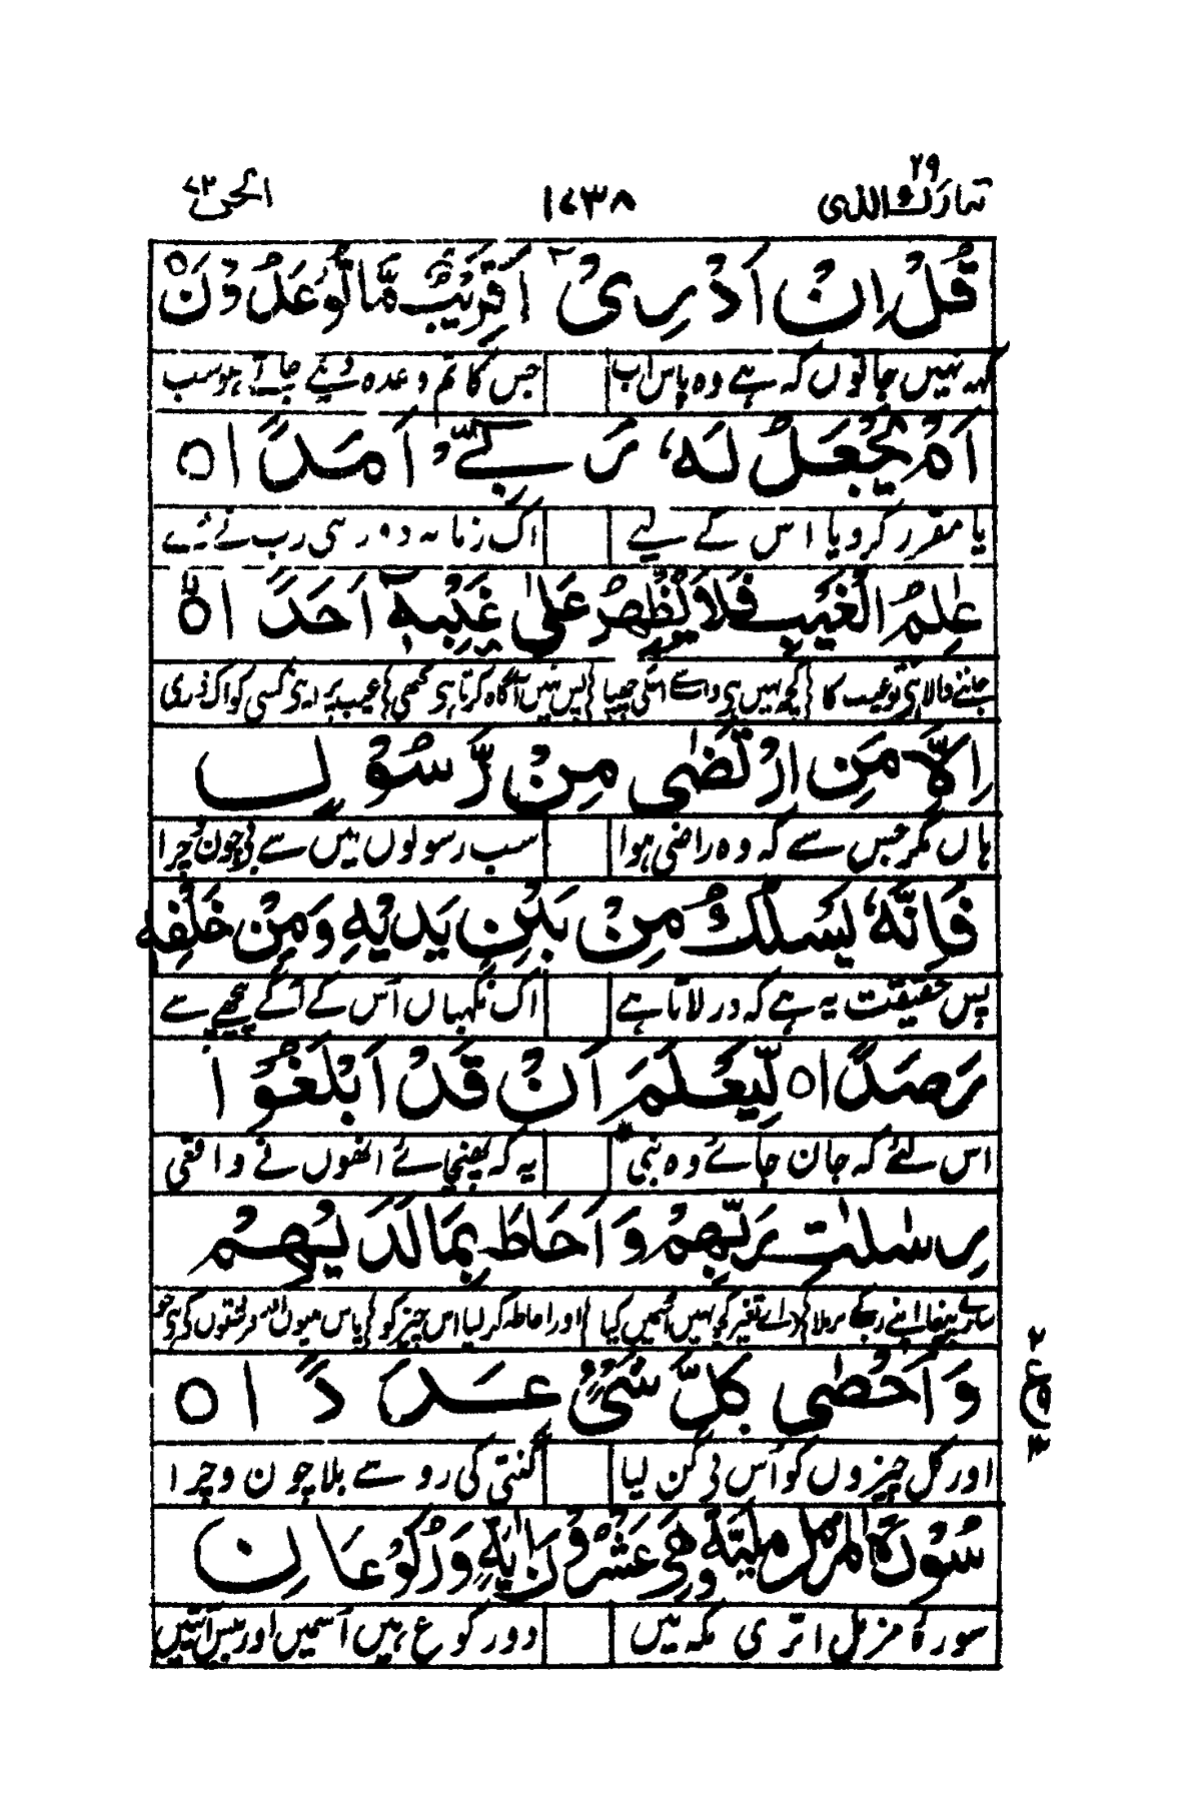 تبارك الذی ۲۹
۱۷۳۸
الجن ۷۲
قُلْ اِنْ اَدْرِیْۤ اَقَرِیْبٌ مَّا تُوْعَدُوْنَ
کہہ نہیں جانوں کہ ہے وہ پاس اب جس کا تم وعدہ دیئے جاتے ہو سب
اَمْ یَجْعَلُ لَهٗ رَبِّیْۤ اَمَدًا ۝
یا مقرر کر دیا اس کے لیے اک زمانہ دور ہی رب نے
عٰلِمُ الْغَیْبِ فَلَا یُظْهِرُ عَلٰی غَیْبِهٖۤ اَحَدًا ۝
جاننے والا ہی تو غیب کا کچھ نہیں ہی واسطے اسکی چھپا پس نہیں آگاہ کرتا ہی کبھی غیب پر
اِلَّا مَنِ ارْتَضٰی مِنْ رَّسُوْلٍ
ہاں مگر جس سے کہ وہ راضی ہوا سب رسولوں میں سے بی چون چرا
فَاِنَّهٗ یَسْلُكُ مِنْ بَیْنِ یَدَیْهِ وَمِنْ خَلْفِهٖ
پس حقیقت یہ ہے کہ در لاتا ہے اک نگہباں اس کے آگے پیچھے سے
رَصَدًا ۝ لِّیَعْلَمَ اَنْ قَدْ اَبْلَغُوْا
اس لئے کہ جان جائے وہ نبی یہ کہ پہنچائے انھوں نے واقعی
رِسٰلٰتِ رَبِّهِمْ وَاَحَاطَ بِمَا لَدَیْهِمْ
اپنے رب کے برملا نہیں اسمیں کیا اور احاطہ کر لیا اس چیز کو پاس
وَاَحْصٰی كُلَّ شَیْءٍ عَدَدًا ۝
اور کل چیزوں کو اس نی گن لیا گنتی کی رو سے بلا چون و چرا
ع ۲
سُوْرَةُ الْمُزَّمِّلِ مَكِّیَّةٌ وَّهِیَ عِشْرُوْنَ اٰیَةً وَّرُكُوْعَانِ
سورۃ مزمل اتری مکہ میں دو رکوع ہیں اسمیں اور بیس آیتیں